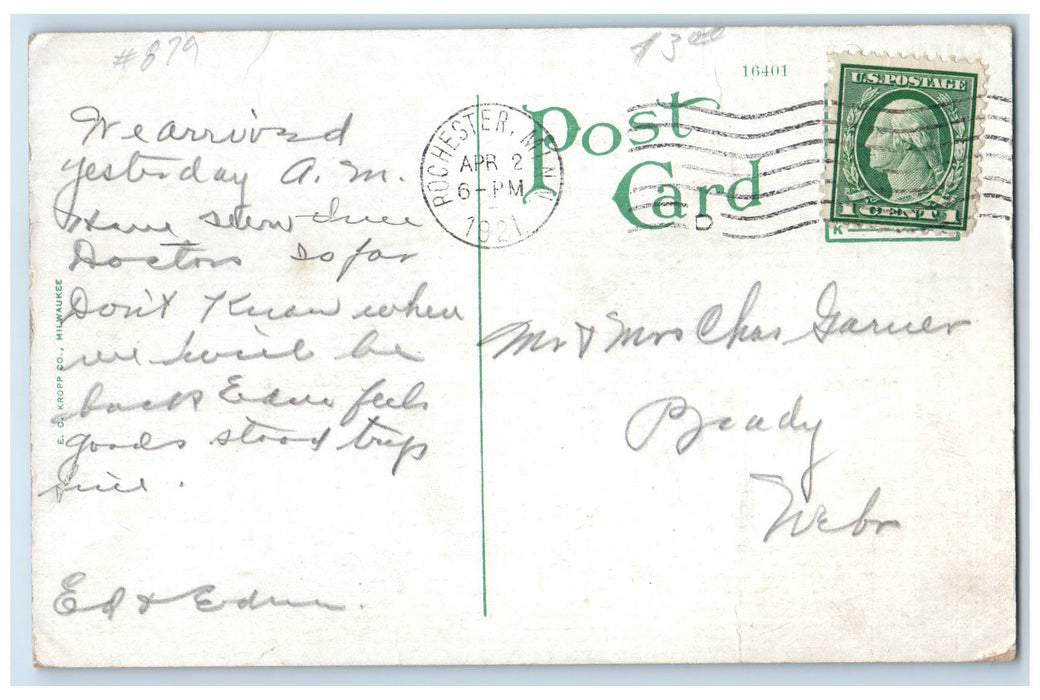 #879
$3.00
16401
U.S. POSTAGE
1 CENT 1
ROCHESTER, MINN.
APR 2
6-PM
1921
D
Post
Card
K
We arrived
yesterday A. M.
Have seen
Doctors so far
Don't Know when
we will be
back Edna feels
good stood trip
fine.
Ed & Edna.
Mr & Mrs Chas Garner
Brady
Nebr
E. C. KROPP CO., MILWAUKEE